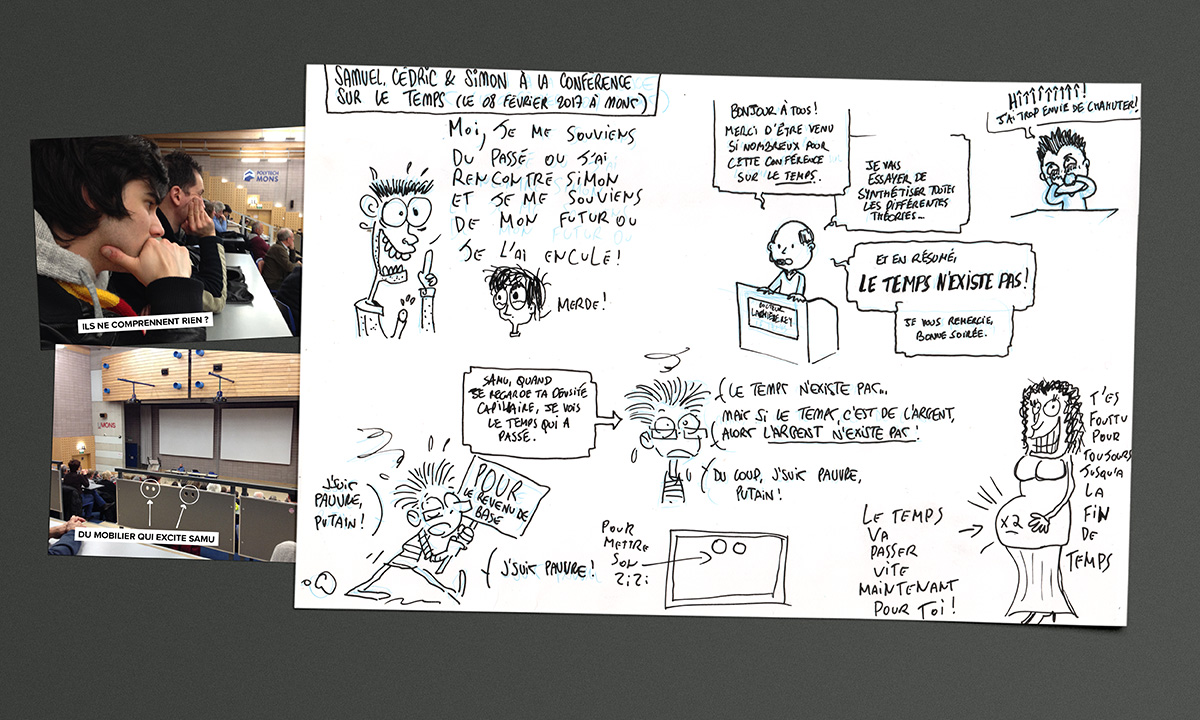 SAMUEL, CÉDRIC & SIMON À LA CONFÉRENCE
SUR LE TEMPS (LE 08 FÉVRIER 2017 À MONS)
MOI, JE ME SOUVIENS
DU PASSÉ OU J'AI
RENCONTRE SIMON
ET JE ME SOUVIENS
DE MON FUTUR OU
JE L'AI ENCULÉ!
MERDE!
BONJOUR À TOUS!
MERCI D'ÊTRE VENU
SI NOMBREUX POUR
CETTE CONFÉRENCE
SUR LE TEMPS.
JE VAIS
ESSAYER DE
SYNTHÉTISER TOUTES
LES DIFFÉRENTES
THÉORIES...
ET EN RÉSUMÉ,
LE TEMPS N'EXISTE PAS!
JE VOUS REMERCIE,
BONNE SOIRÉE.
DOCTEUR
J'AI TROP ENVIE DE CHAHUTER!
POLYTECH
MONS
ILS NE COMPRENNENT RIEN ?
MONS
DU MOBILIER QUI EXCITE SAMU
SAMU, QUAND
JE REGARDE TA DENSITÉ
CAPILLAIRE, JE VOIS
LE TEMPS QUI A
PASSÉ.
LE TEMPS N'EXISTE PAS...
MAIS SI LE TEMPS, C'EST DE L'ARGENT,
ALORS L'ARGENT N'EXISTE PAS!
DU COUP, J'SUIS PAUVRE,
PUTAIN!
J'SUIS
PAUVRE,
PUTAIN!
POUR
LE REVENU DE
BASE
J'SUIS PAUVRE!
POUR
METTRE
SON
ZIZI
LE TEMPS
VA
PASSER
VITE
MAINTENANT
POUR TOI!
X2
T'ES
FOUTU
POUR
TOUJOURS
JUSQU'A
LA
FIN
DE
TEMPS